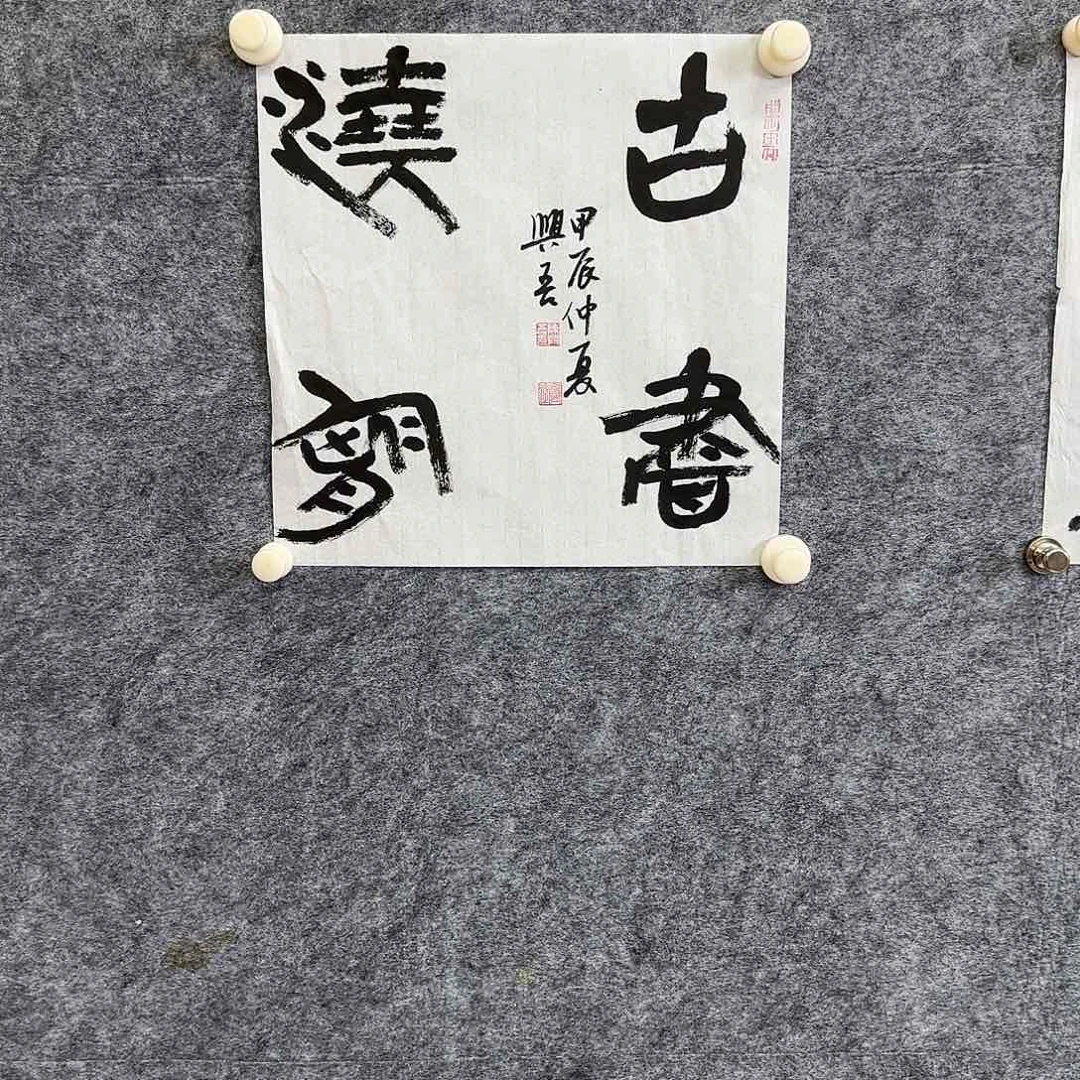 古書
遶
甲辰仲夏
興吾